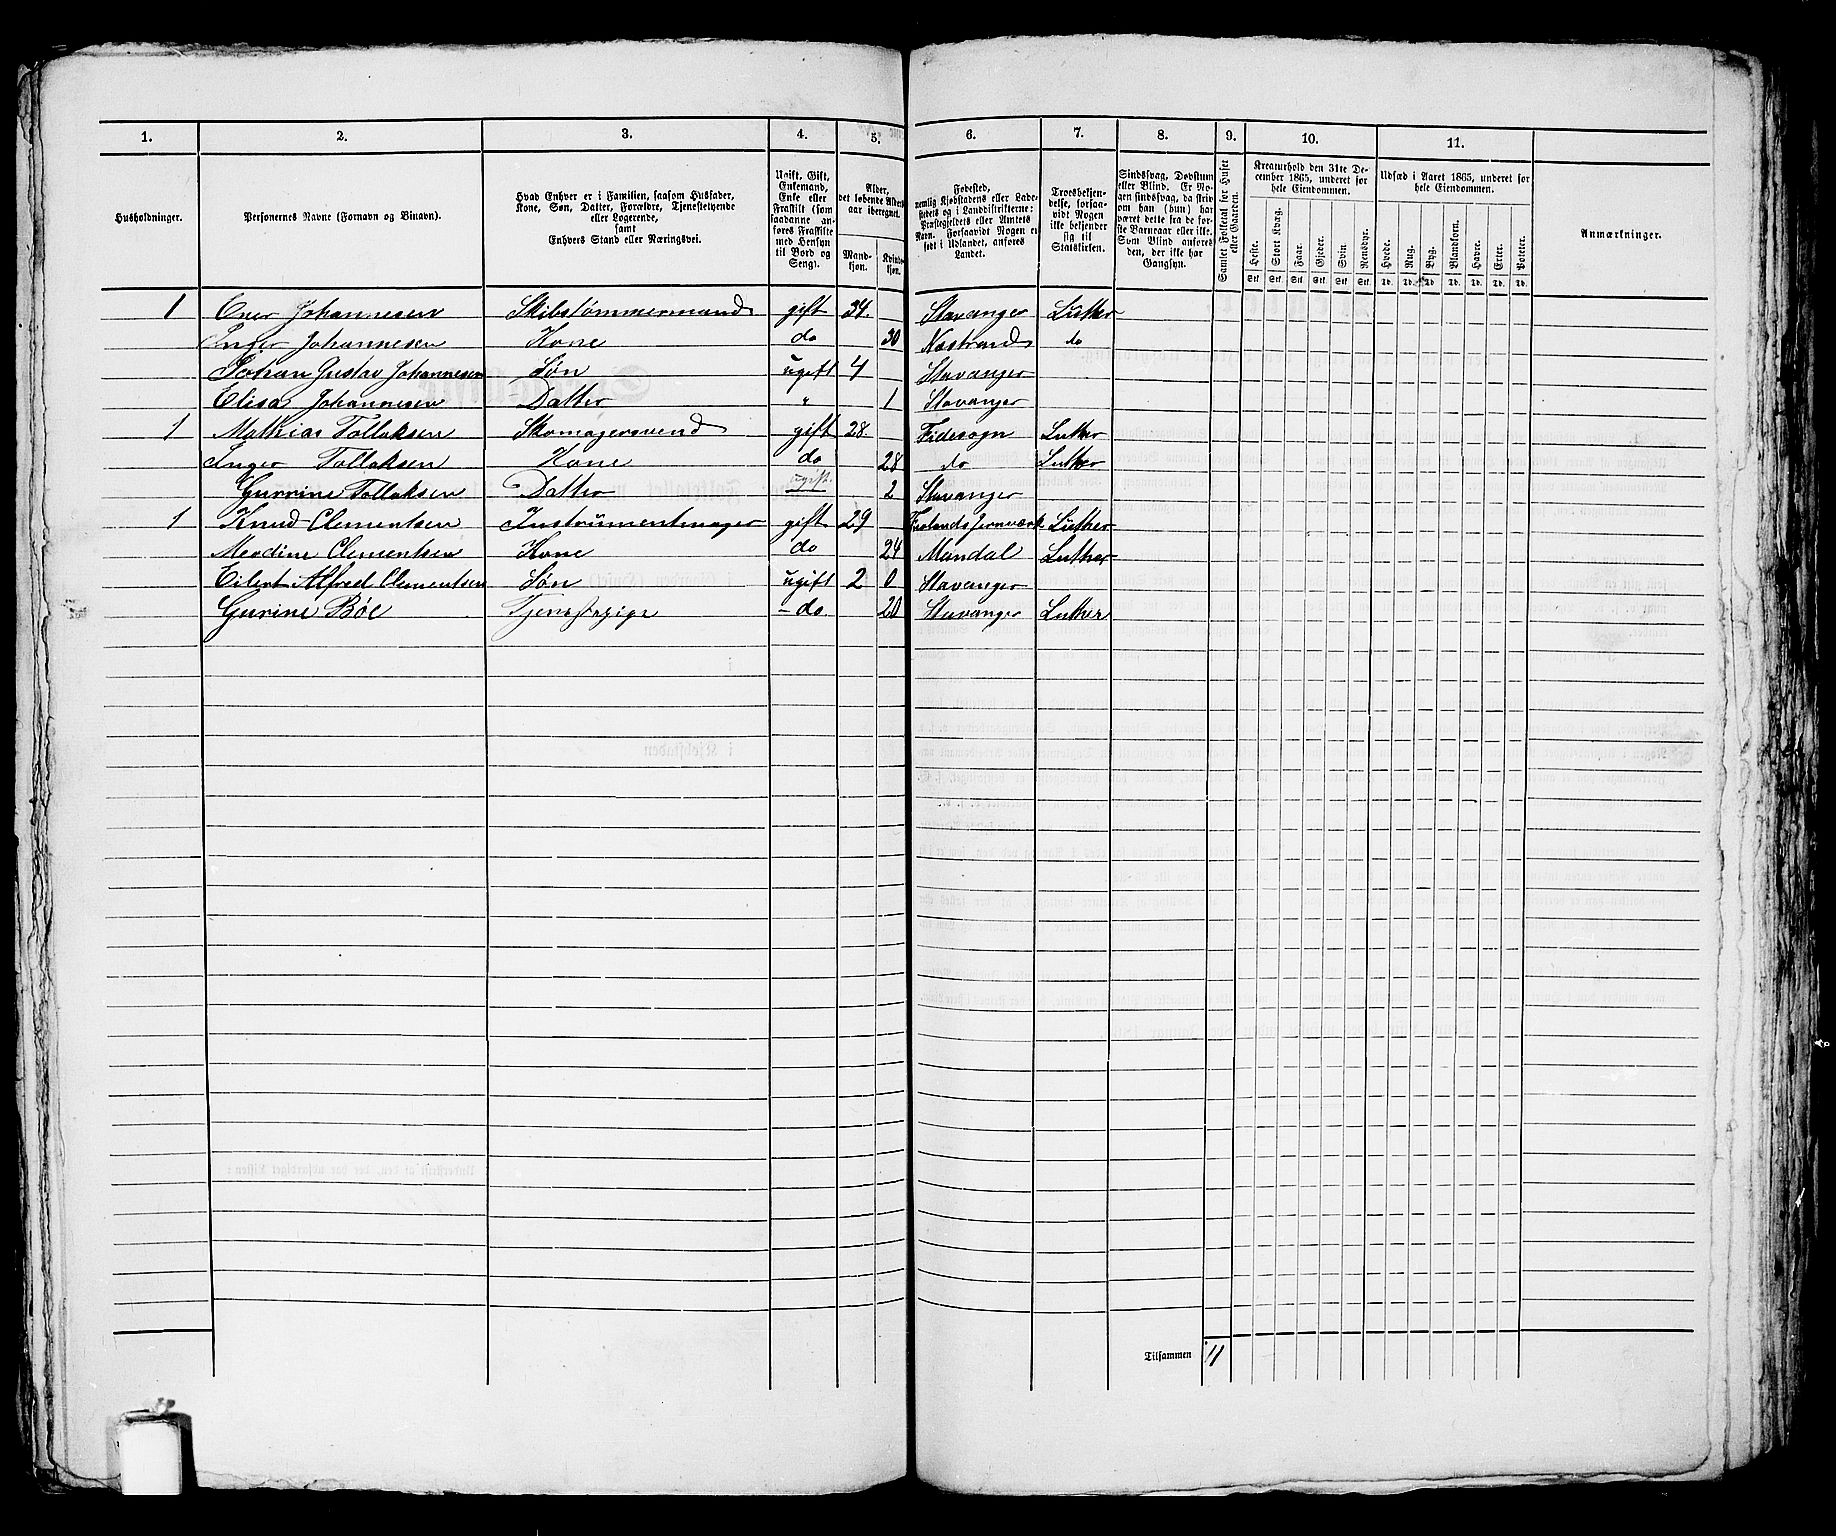 1. 2. 3. 4. 5. 6. 7. 8. 9. 10. 11.
Husholdninger.
Personernes Navne (Fornavn og Binavn).
Hvad Enhver er i Familien, saasom Husfader,
Kone, Søn, Datter, Forældre, Tjenestetyende
eller Logerende,
samt
Enhvers Stand eller Næringsvei.
Ugift, Gift,
Enkemand,
Enke eller
Fraskilt (som
saadanne an-
føres Fraskilte
med Hensyn
til Bord og
Seng).
Alder,
det løbende Alders-
aar iberegnet.
Mand-
kjøn.
Kvinde-
kjøn.
Fødested,
nemlig Kjøbstadens eller Lade-
stedets og i Landdistrikterne:
Præstegjeldets eller Amtets
Navn. Forsaavidt Nogen er
født i Udlandet, anføres
Landet.
Troesbekjen-
delse, forsaa-
vidt Nogen
ikke bekjender
sig til
Statskirken.
Sindssvag, Døvstum
eller Blind. Er No-
gen sindssvag, da skriv
om han (hun) har
været dette fra de før-
ste Barneaar eller ikke.
Som Blind anføres
den, der ikke har
Gangsyn.
Samlet Folketal for Huset
eller Gaarden.
Kreaturhold den 31te De-
cember 1865, underet for
hele Eiendommen.
Heste. Stort Kvæg. Faar. Gjeder. Svin Rensdyr.
Stk. Stk. Stk. Stk. Stk. Stk.
Udsæd i Aaret 1865, underet for
hele Eiendommen.
Hvede. Rug. Byg. Blandkorn. Havre. Erter. Poteter.
Td. Td. Td. Td. Td. Td. Td.
Anmærkninger.
1 Ener Johannesen Skibstømmermand gift 34. Stavanger Luther
Inger Johannesen Kone do 30 Næstrand do
Johan Gustav Johannesen Søn ugift 4 Stavanger
Elisa Johannesen Datter " 1 Stavanger
1 Mathias Tollaksen Skomagersvend gift 28. Fidesogn Luther
Inger Tollaksen Kone do 28 do Luther
Gurine Tollaksen Datter ugift. 2 Stavanger
1 Knud Clementsen Instrumentmager gift 29 Froelands Jernværk Luther
Merdine Clementsen Kone do 24 Mandal Luther
Eilert Alfred Clementsen Søn ugift 2 0 Stavanger
Gurine Bøe Tjenstepige - do 20 Stavanger Luther
Tilsammen 11